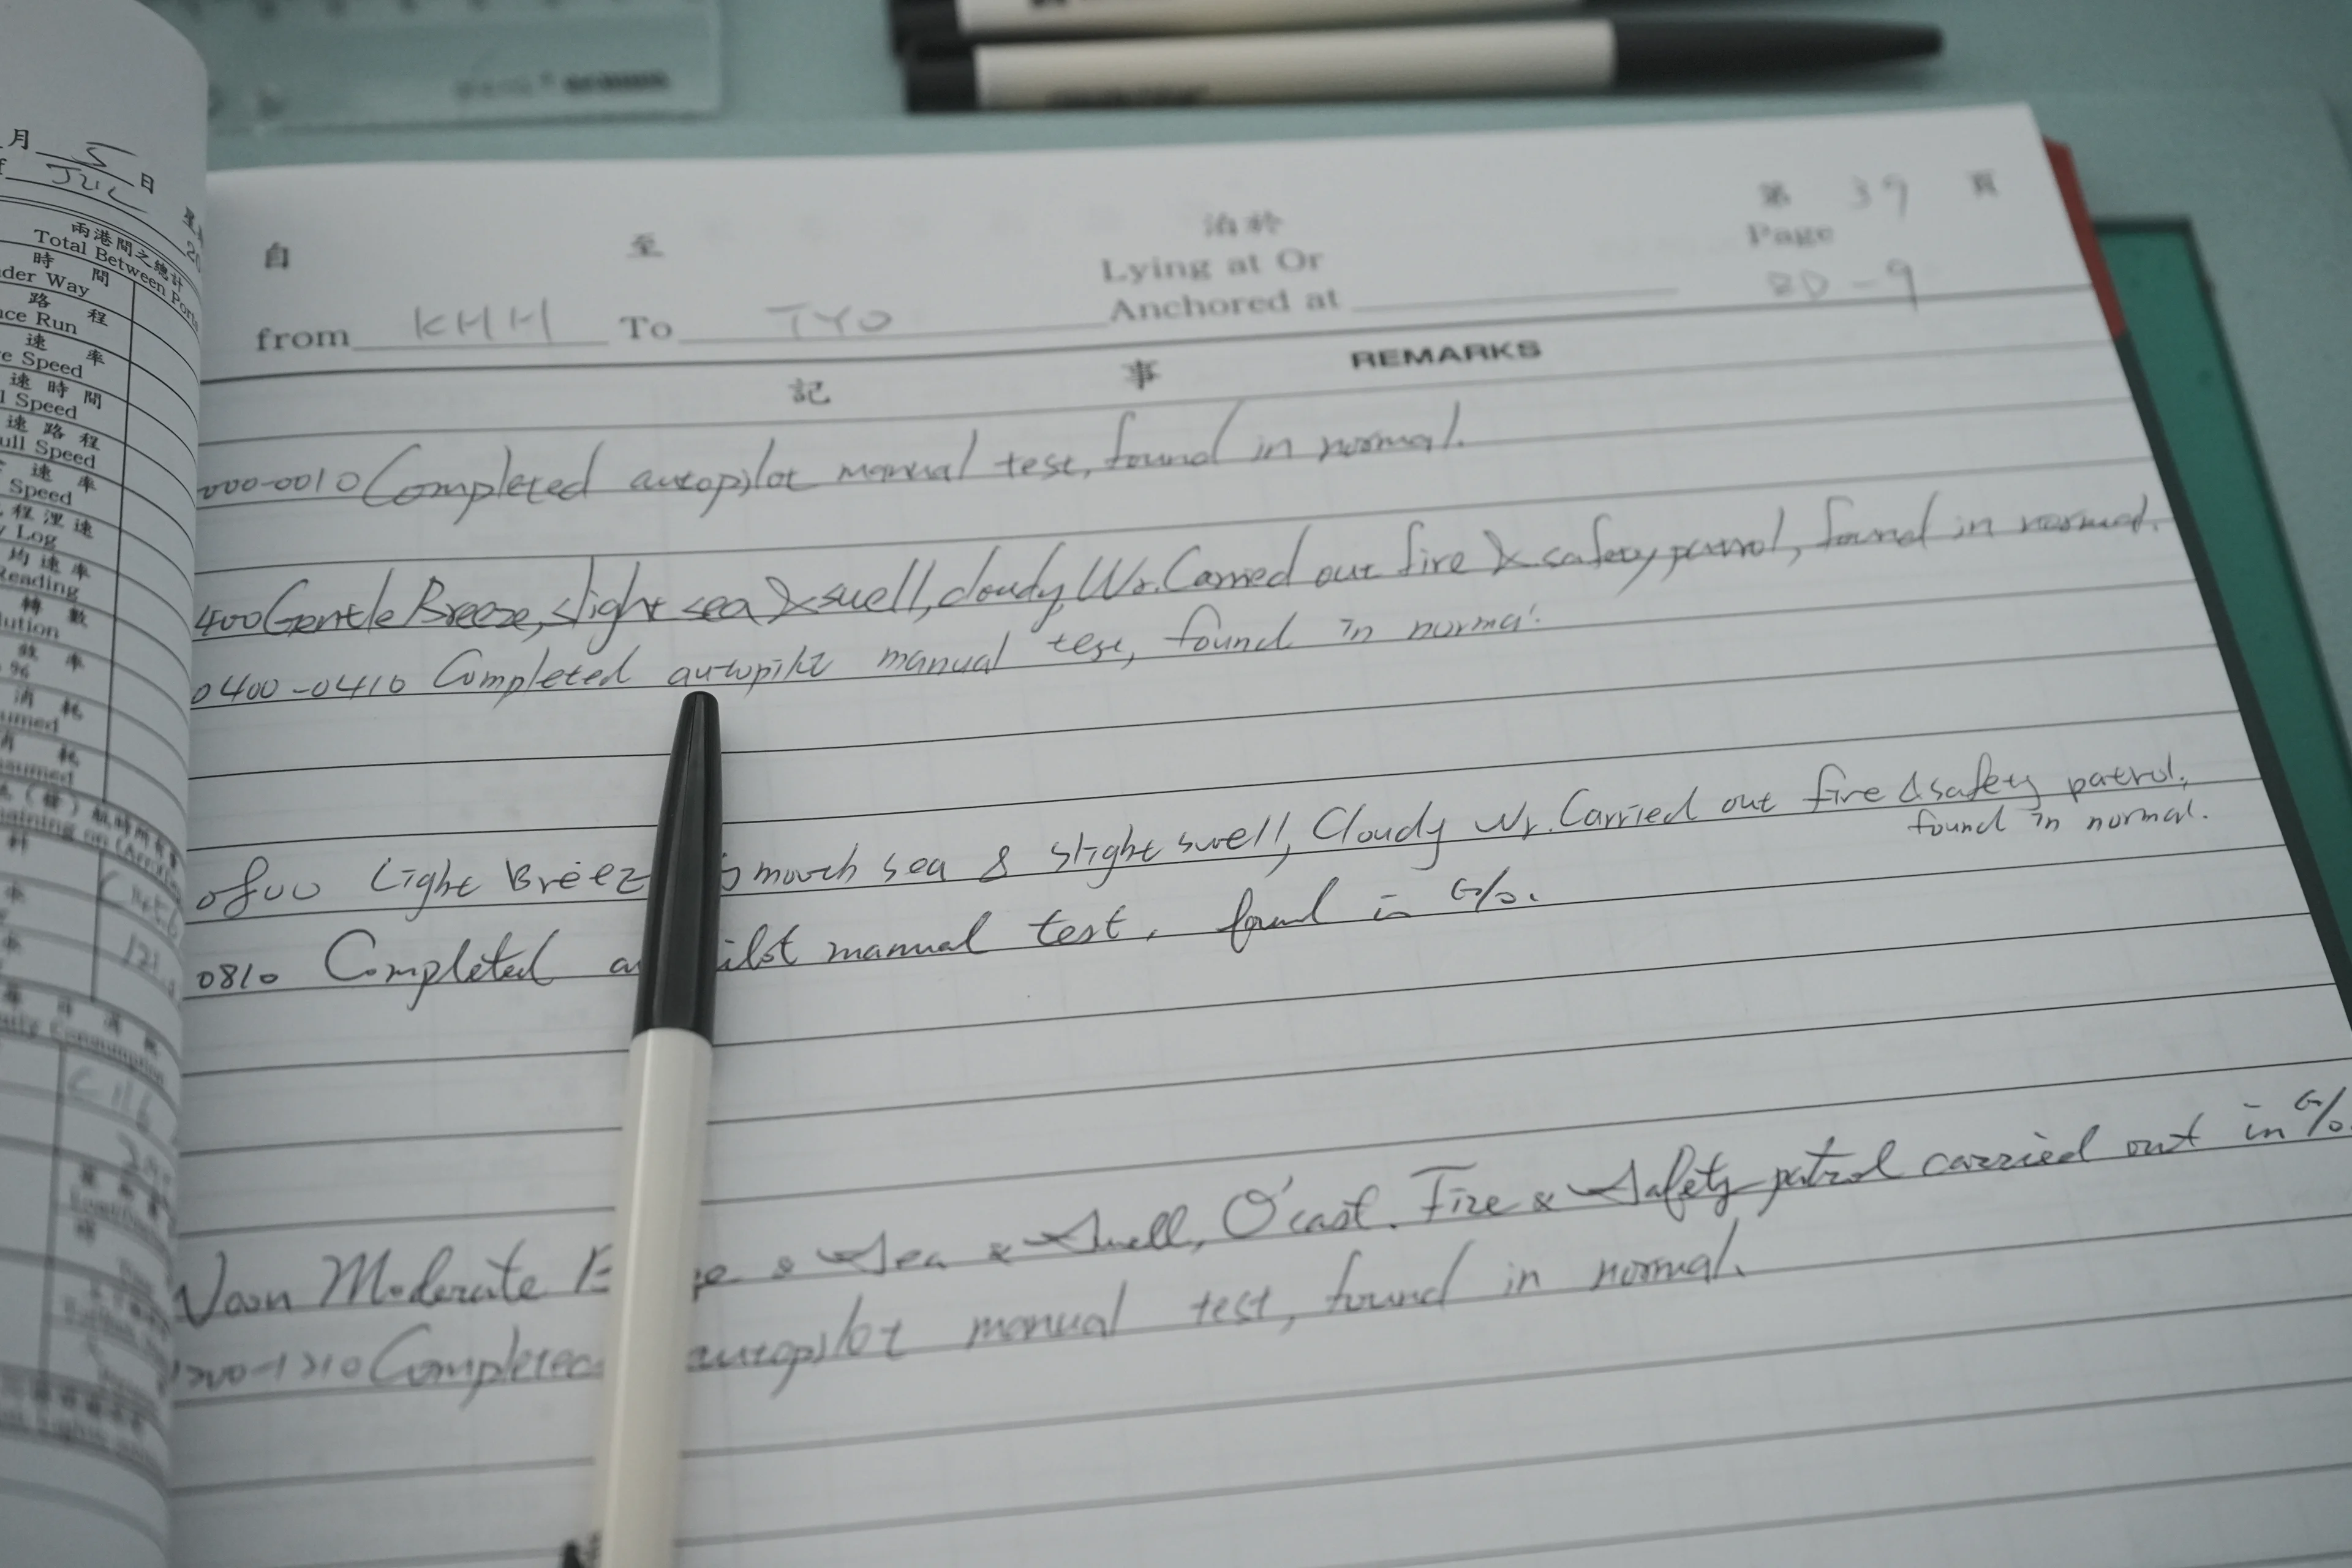 月 5 日
JUL
兩港間之總計
Total Between Ports
時 間
der Way
路 程
ce Run
速 率
e Speed
速 時 間
l Speed
速 路 程
ull Speed
速 率
Speed
程 浬 速
Log
均 速 率
Reading
轉 數
lution
效 率
%
消 耗
umed
消 耗
sumed
第 39 頁
自 至 泊於 Page
from KHH To TYO Lying at Or
Anchored at RD-9
記 事 REMARKS
000-0010 Completed autopilot manual test, found in normal.
400 Gentle Breeze, slight sea & swell, cloudy Wr. Carried out fire & safety patrol, found in normal.
0400-0410 Completed autopilot manual test, found in normal.
0800 Light Breez smooth sea & slight swell, Cloudy Wr. Carried out fire & safety patrol,
found in normal.
0810 Completed au ilot manual test, found in G/O.
Noon Moderate B ze & Sea & Swell, O'cast. Fire & Safety patrol carried out in G/O.
1200-1210 Completed autopilot manual test, found in normal.